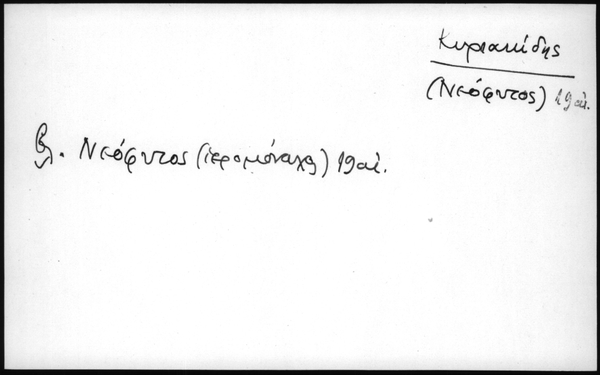 Κυριακίδης
(Νεόφυτος) 19 αἰ.
βλ. Νεόφυτος (ἱερομόναχος) 19 αἰ.